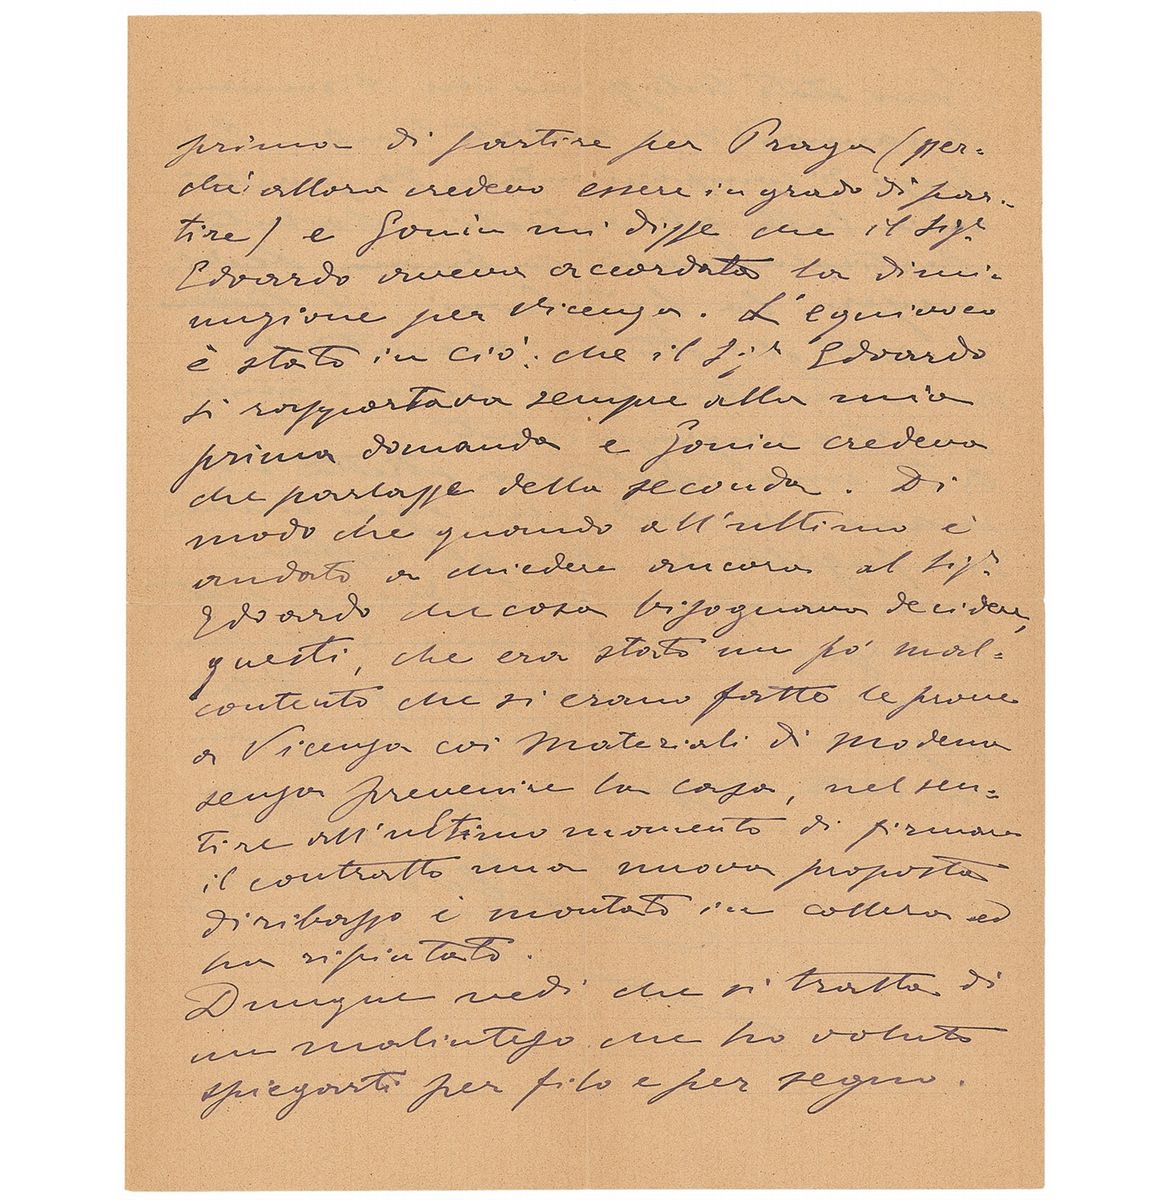 prima di partire per Praga (per-
chè allora credevo essere in grado di par-
tire) e Gonin mi disse che il Sigr
Edoardo aveva accordato la dimi-
nuzione per Vicenza. L'equivoco
è stato in ciò: che il Sigr Edoardo
si rapportava sempre alla mia
prima domanda e Gonin credeva
che parlasse della seconda. Di
modo che quando all'ultimo è
andato a chiedere ancora al Sigr
Edoardo che cosa bisognava decidere,
questi, che era stato un pó mal-
contento che si erano fatte le prove
a Vicenza coi materiali di Modena
senza prevenire la casa, nel sen-
tire all'ultimo momento di firmare
il contratto una nuova proposta
di ribasso è montato in collera ed
ha rifiutato.
Dunque vedi che si tratta di
un malinteso che ho voluto
spiegarti per filo e per segno.